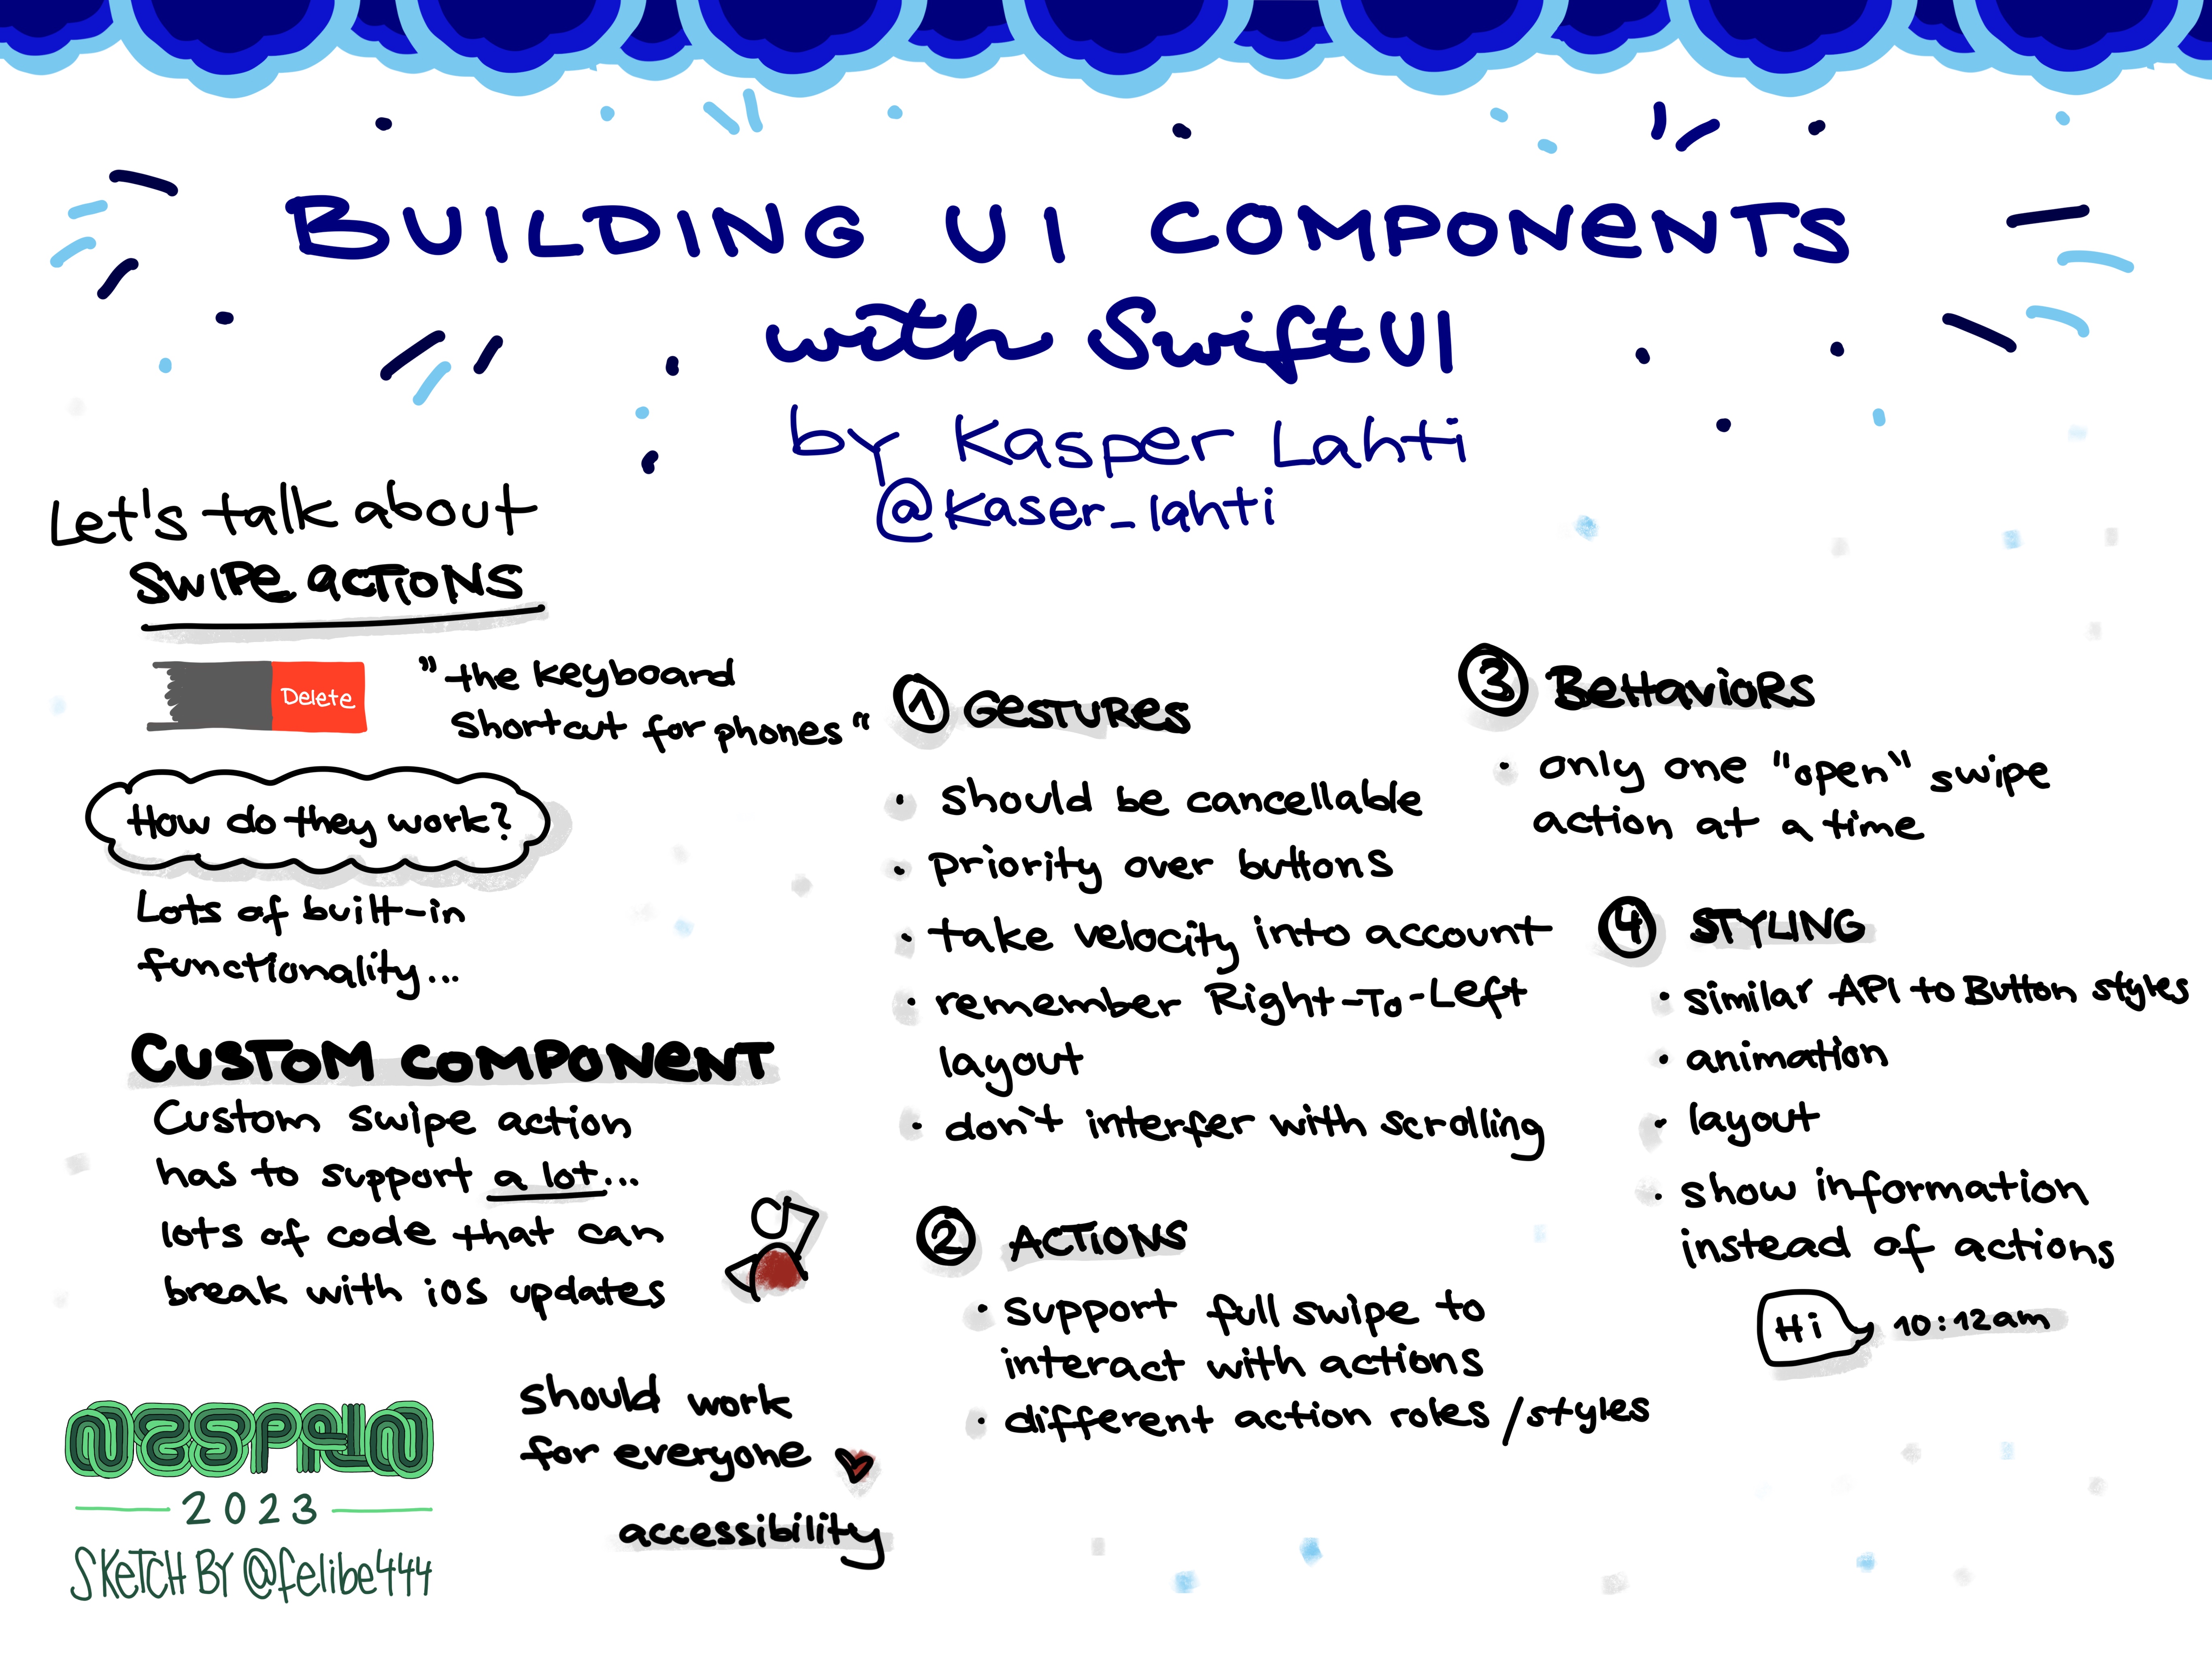 BUILDING UI COMPONENTS
with SwiftUI
by Kasper Lahti
@kaser_lahti
Let's talk about
SWIPE ACTIONS
Delete
"the keyboard
shortcut for phones"
How do they work?
Lots of built-in
functionality...
CUSTOM COMPONENT
Custom swipe action
has to support a lot...
lots of code that can
break with iOS updates
should work
for everyone
accessibility
1 GESTURES
• should be cancellable
• priority over buttons
• take velocity into account
• remember Right-To-Left
layout
• don't interfer with scrolling
2 ACTIONS
• support full swipe to
interact with actions
• different action roles/styles
3 BEHAVIORS
• only one "open" swipe
action at a time
4 STYLING
• similar API to Button styles
• animation
• layout
• show information
instead of actions
Hi 10:12am
2023
SKETCH BY @felibe444